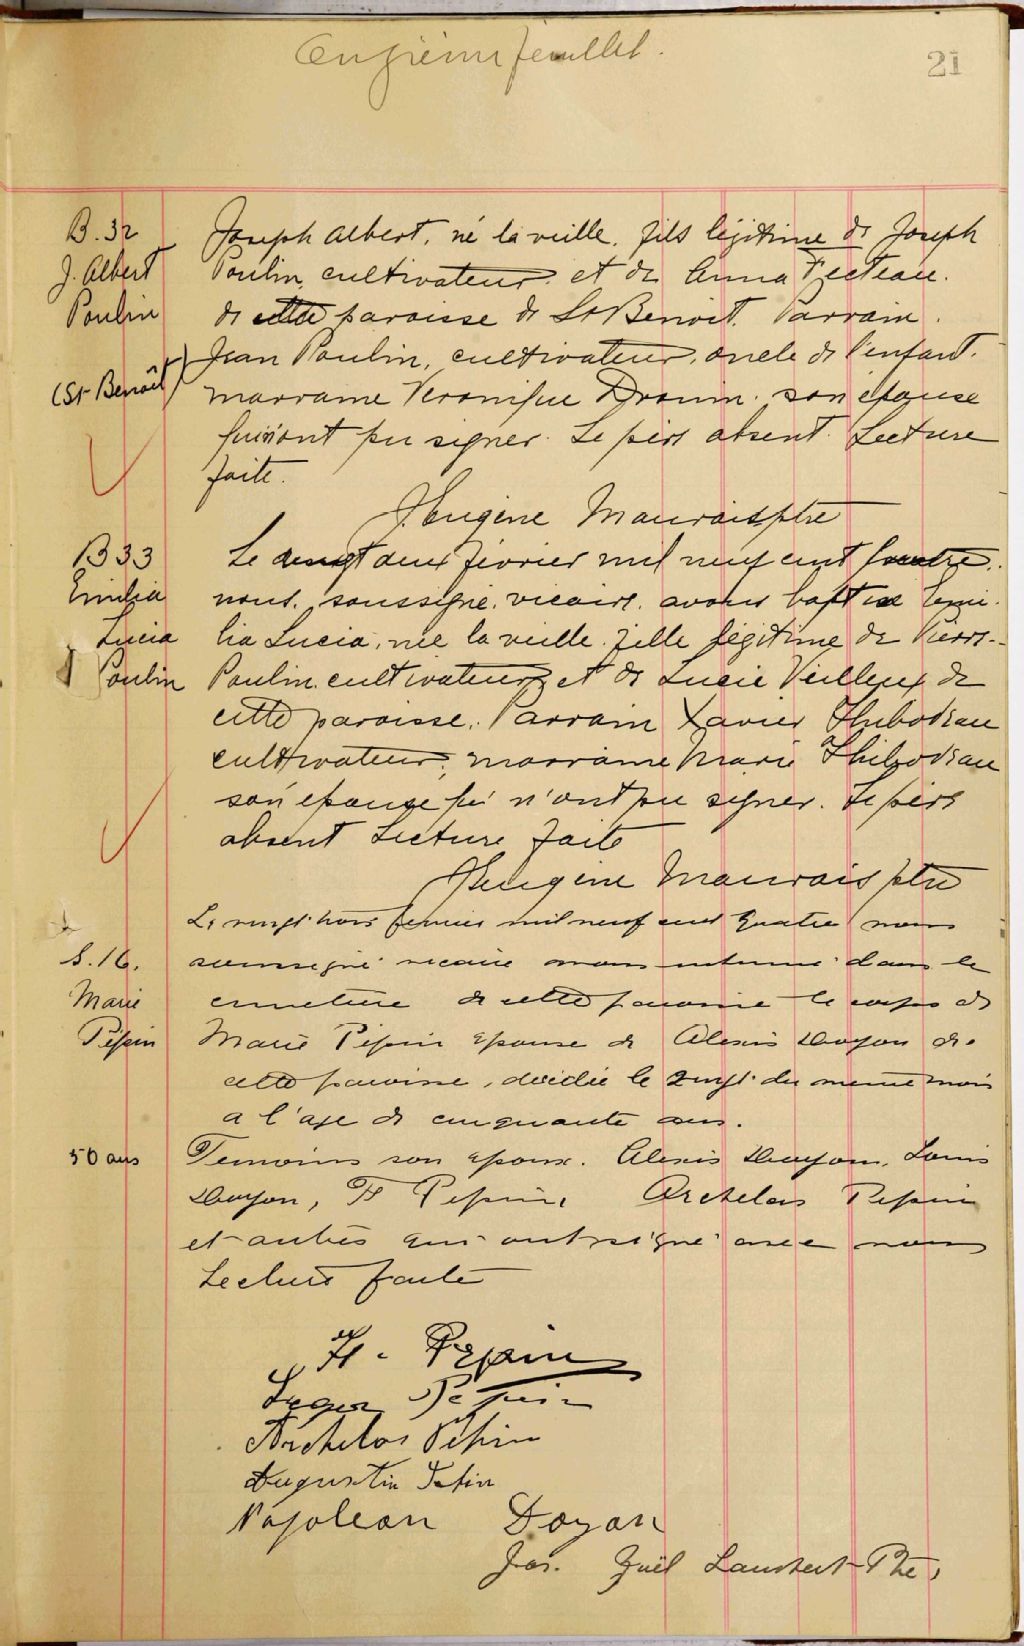 Onzième feuillet.
21
B. 32
J. Albert
Poulin
(St Benoît)
Joseph Albert, né la veille, fils légitime de Joseph
Poulin, cultivateur et de Anna Fecteau.
de cette paroisse de St Benoit. Parrain.
Jean Poulin, cultivateur, oncle de l'enfant.
marraine Veronique Drouin son épouse
qui n'ont pu signer. Le père absent. Lecture
faite.
JEugène Mauvais ptre
B 33
Emilia
Lucia
Poulin
Le vingt deux février mil neuf cent quatre.
nous, soussigné, vicaire, avons baptisé Emi-
lia Lucia, née la veille fille légitime de Pierre
Poulin cultivateur et de Lucie Veilleux de
cette paroisse. Parrain Xavier Thibodeau
cultivateur, marraine Marie Thibodeau
son épouse qui n'ont pu signer. Le père
absent Lecture faite
JEugène Mauvais ptre
S. 16.
Marie
Pépin
50 ans
Le vingt trois fevrier mil neuf cent quatre nous
soussigné vicaire avons inhumé dans le
cimetière de cette paroisse le corps de
Marie Pépin epouse de Alexis Doyon de
cette paroisse, décédée le vingt du même mois
a l'age de cinquante ans.
Temoins son epoux. Alexis Doyon, Louis
Doyon, H Pepin, Archelas Pepin
et autres qui ont signé avec nous
Lecture faite
H. Pepin
Pepin
Archelas Pépin
Augustin
Napoleon Doyon
Jos. Lambert Ptre,